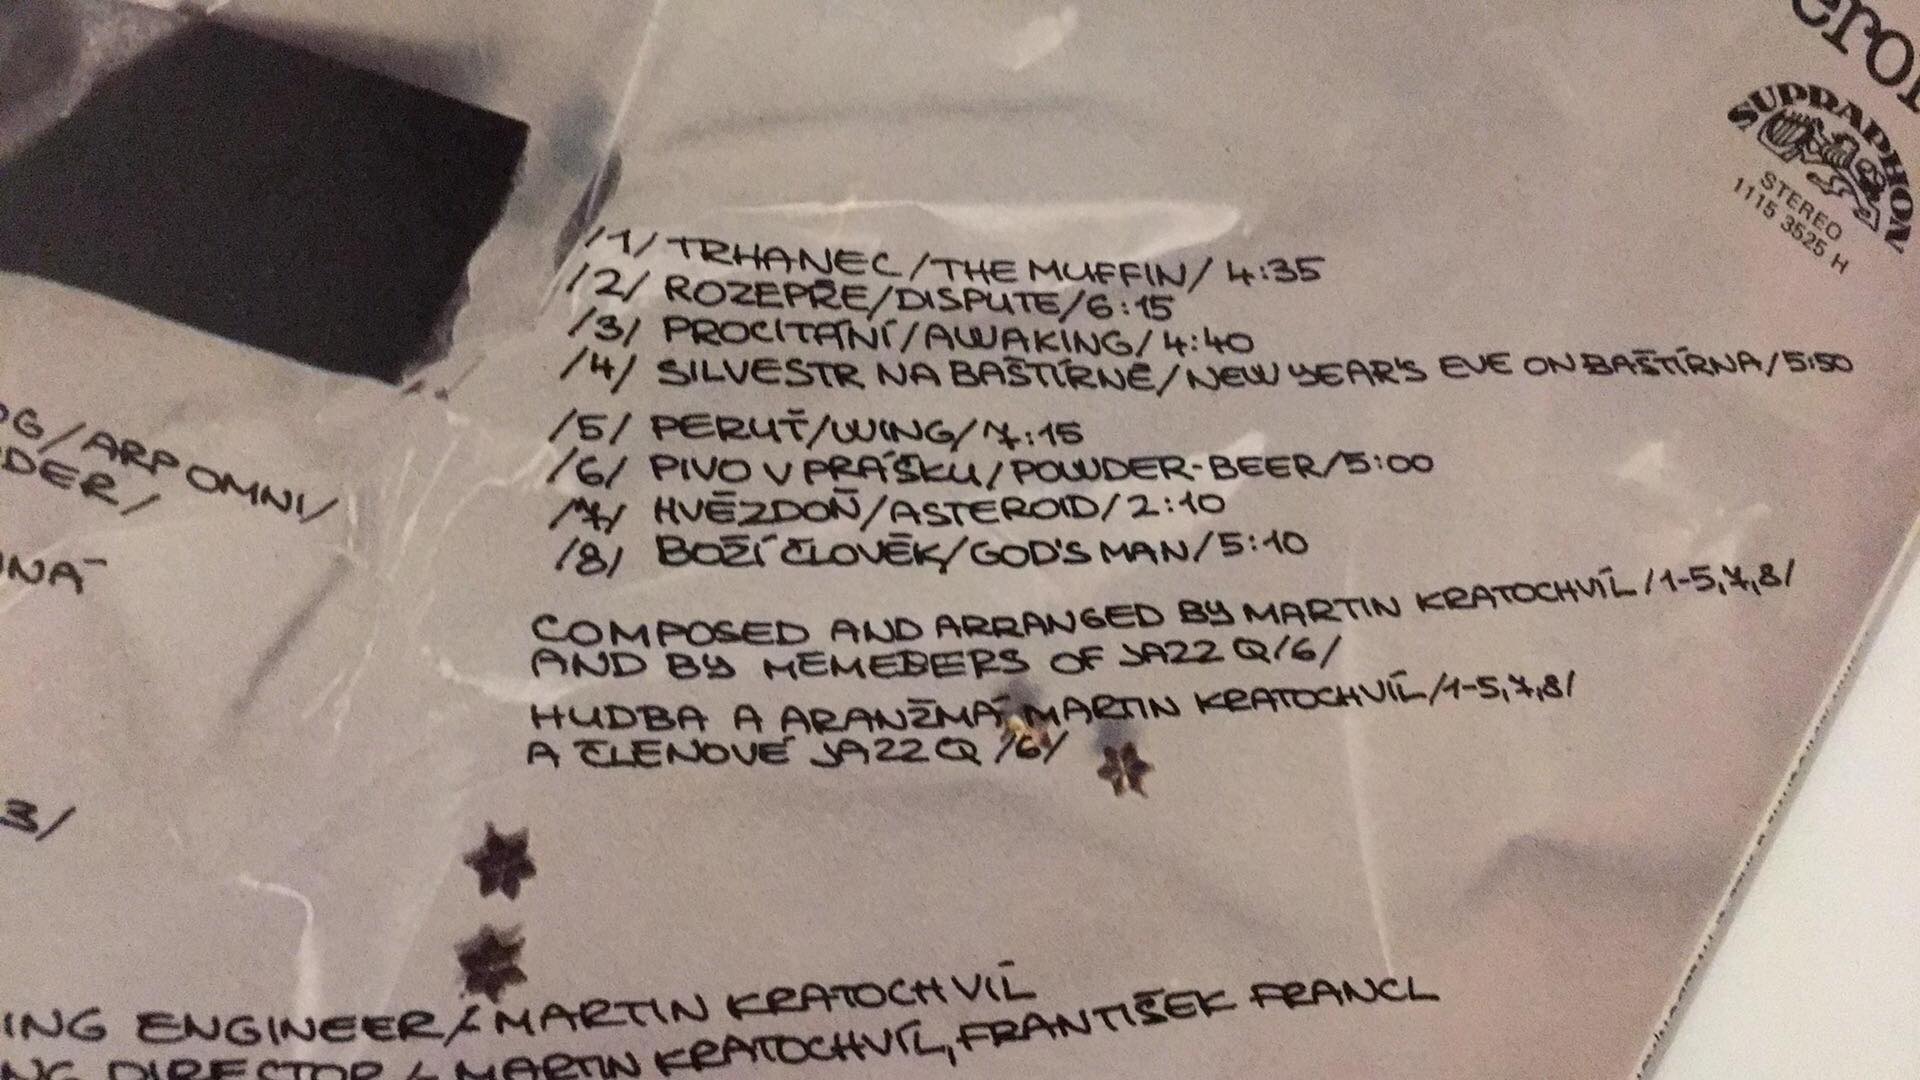 SUPRAPHON
STEREO
1115 3525 H
/1/ TRHANEC/THE MUFFIN/ 4:35
/2/ ROZEPŘE/DISPUTE/6:15
/3/ PROCITÁNÍ/AWAKING/4:40
/4/ SILVESTR NA BAŠTÍRNĚ/NEW YEAR'S EVE ON BAŠTÍRNA/5:50
/5/ PERUŤ/WING/7:15
/6/ PIVO V PRÁŠKU/POWDER-BEER/5:00
/7/ HVĚZDOŇ/ASTEROID/2:10
/8/ BOŽÍ ČLOVĚK/GOD'S MAN/5:10
/ARP OMNI/
COMPOSED AND ARRANGED BY MARTIN KRATOCHVÍL/1-5,7,8/
AND BY MEMEBERS OF JAZZ Q/6/
HUDBA A ARANŽMÁ MARTIN KRATOCHVÍL/1-5,7,8/
A ČLENOVÉ JAZZ Q /6/
3/
ENGINEER/MARTIN KRATOCHVÍL
DIRECTOR/MARTIN KRATOCHVÍL, FRANTIŠEK FRANCL